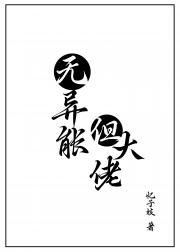 无异能
但大佬
忆子 著